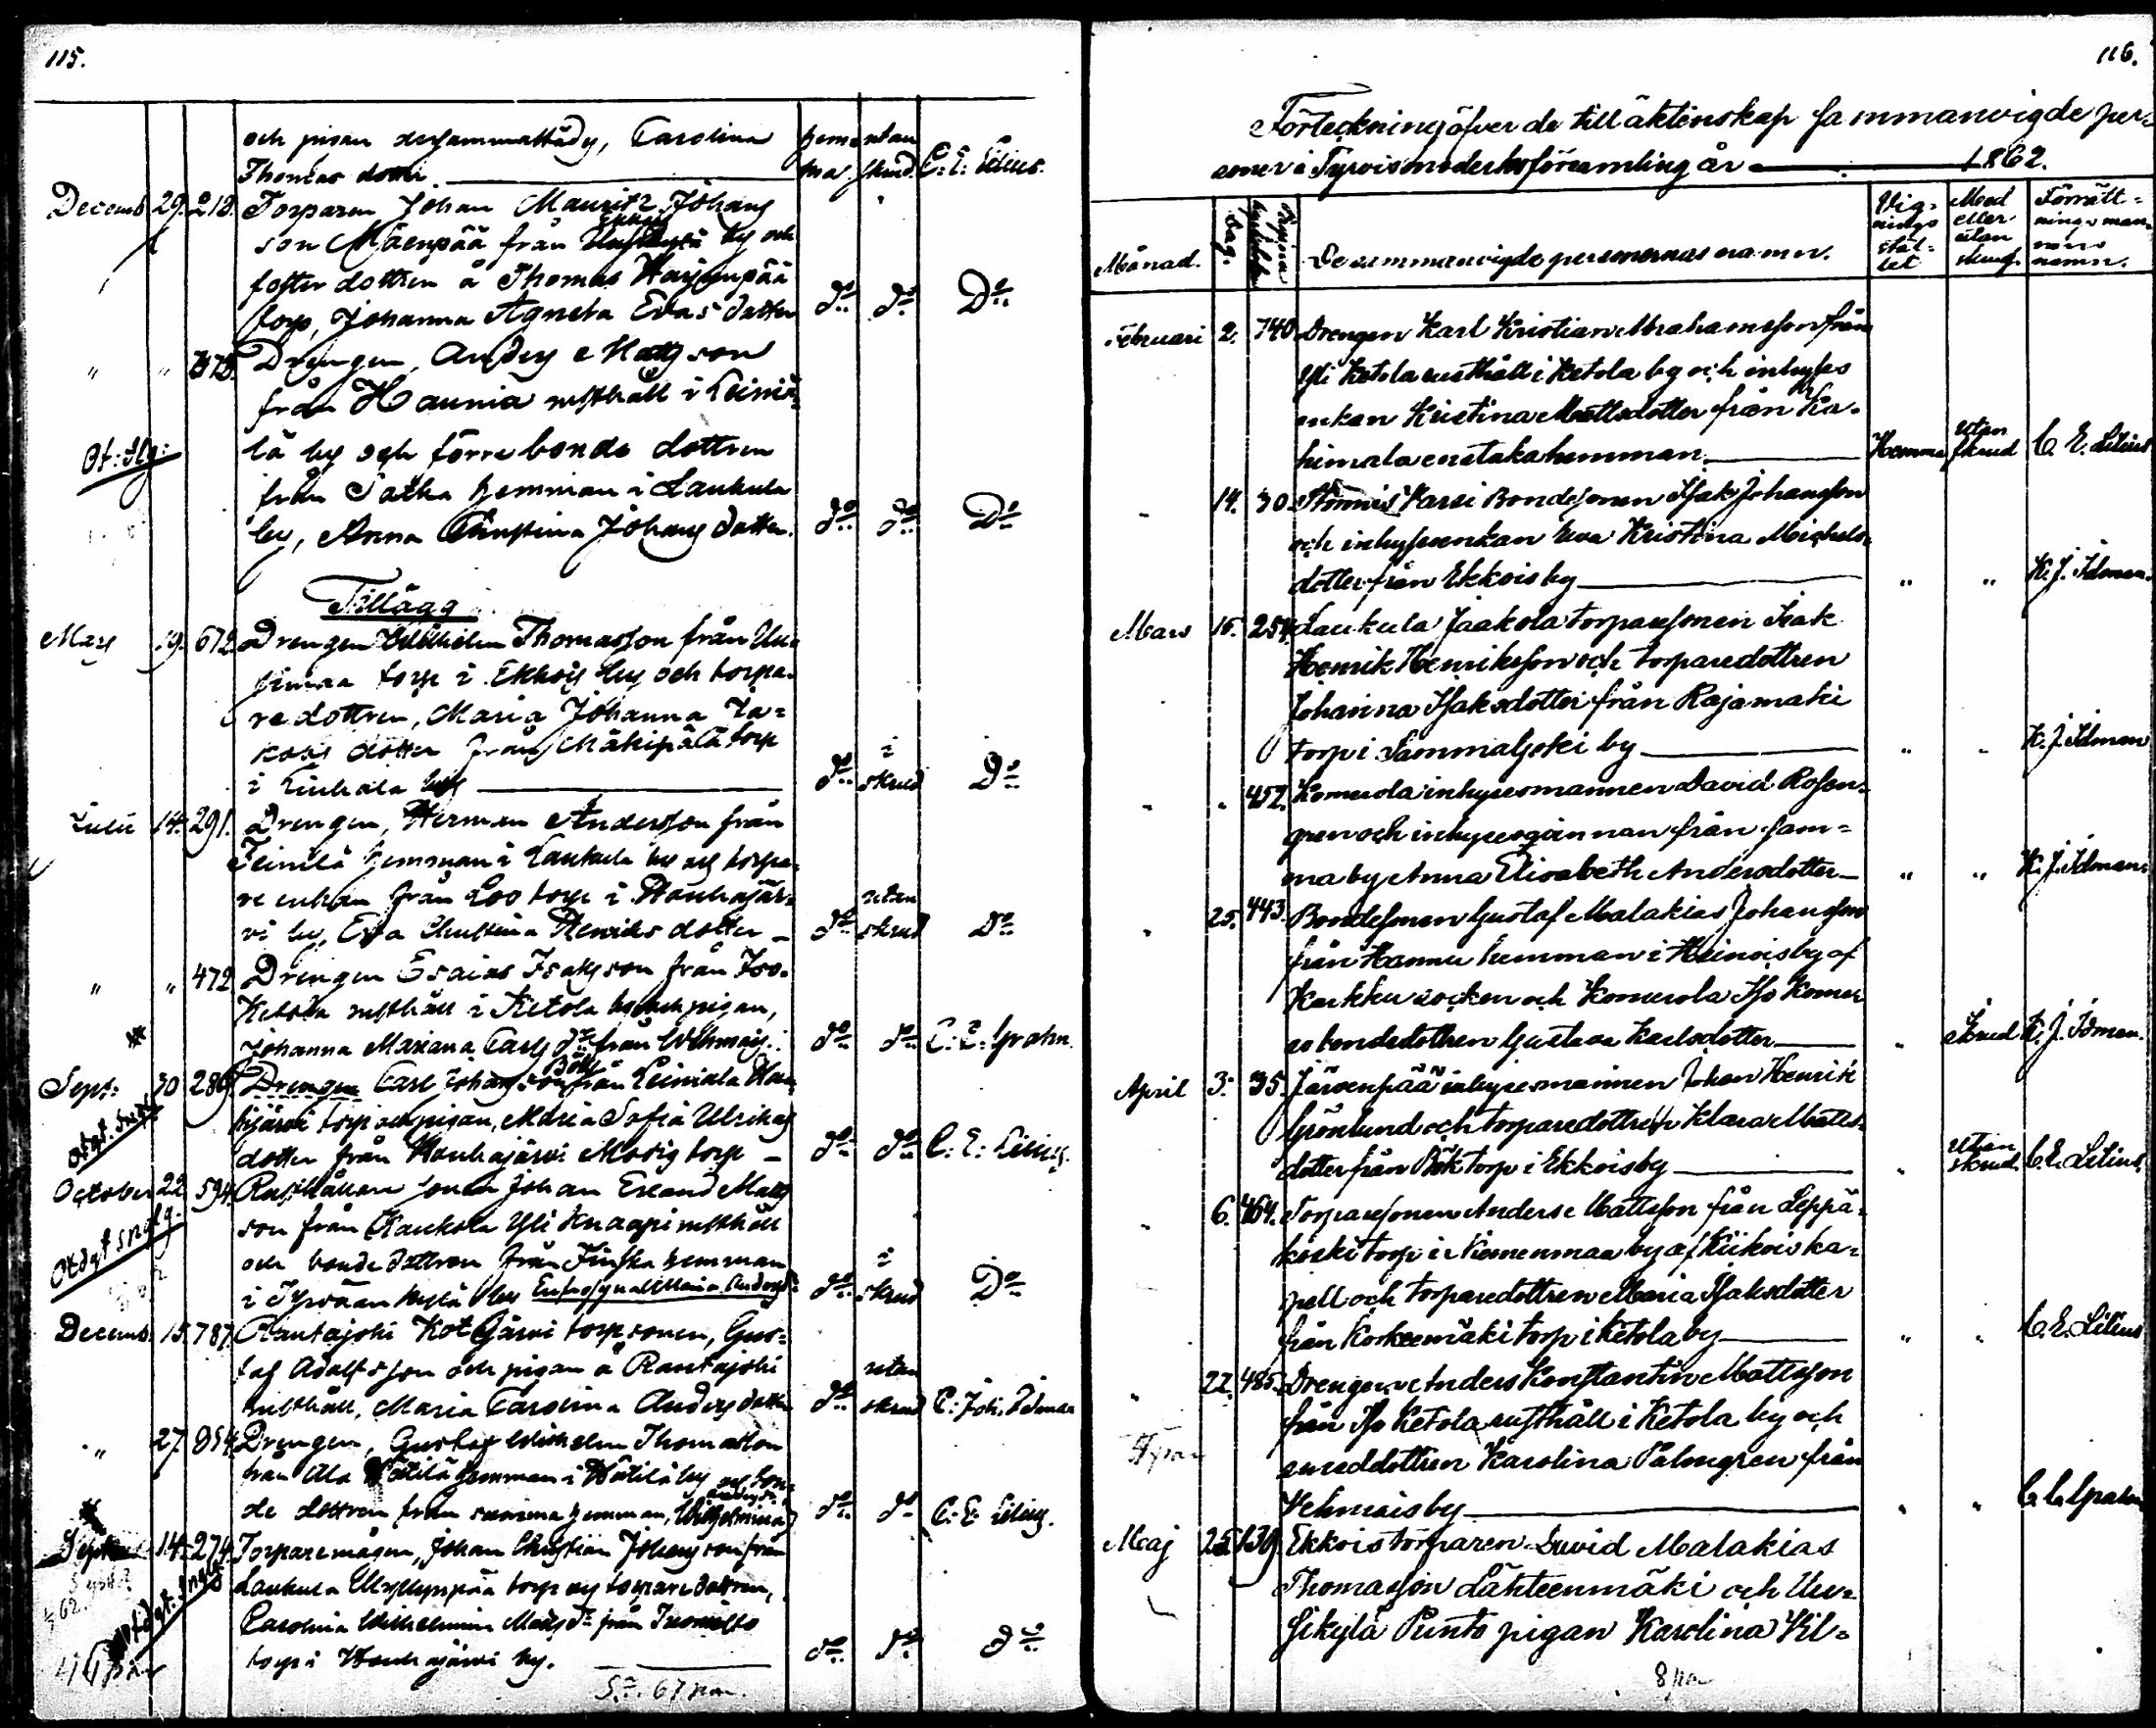 115.
och pigan dersammastädes, Carolina hemma utan
Thomas dotter. skrud. C: E: Lilius.
Decemb. 29. 218. Torparen Johan Mauritz Johans
son Mäenpää från by och
foster dottren å Thomas Harjunpää
torp, Johanna Agneta Evas dotter do do Do
" " Drengen, Anders Matts son
från Haunia rusthåll i Leini-
Ot: Slg: lä by och förre bonde dottren
från hemman i Laukula
by, Anna Christina Johans dotter. do do Do
Tillägg
Mars 19. 672. Drengen Wilhelm Thomasson från Uu-
simaa torp i Ekkois by och torpa-
re dottren, Maria Johanna Ja-
kobs dotter från Mäkipää torp i
i by do skrud Do
Julii 14. 291. Drengen, Herman Andersson från
Leinilä hemman i Laukula by och torpa-
re enkan från Loo torp i Houhajär- utan
vi by, Eva Christina Henriks dotter do skrud Do
" " 472. Drengen Esaias Isaksson från Iso-
Ketola rusthåll i Ketola by och pigan,
Johanna Mariana Carls dr från Wehmais. do do C: E: Grahn.
Sept: 30 289. Drengen Carl Johansson Böök från Leiniala Hou
hajärvi torp och pigan, Maria Sofia Ulrikas
dotter från Houhajärvi Modig torp do do C: E: Lilius.
October 22 594. Rusthållare sonen Johan Erland Matts
son från Kaukola Yli Knaapi rusthåll
och bonde dottren från Junka hemman i
i Tyrvään kylä by Eufrosyna Maria Andersd. do skrud Do
Decemb. 15. 787. Rautajoki Kotajärvi torp sonen, Gus-
taf Adolfsson och pigan å Rautajoki utan
rusthåll, Maria Carolina Anders dotter do skrud C: Joh. Idman
" 27. 854. Drengen, Gustaf Wilhelm Thomasson
från Ala Wätilä hemman i Wätilä by och bon-
de dottren från samma hemman, Wilhelmina Andersdr do do C: E: Lilius.
Sept. 14. 274. Torparemågen, Johan Christian Johansson från
Laukula Myllynpää torp och torpare dottren,
Carolina Wilhelmina Matts dr från
torp i Houhajärvi by. do do Do
S:a 67 par.
116.
Förteckning öfver de till äktenskap sammanvigde per-
soner i Tyrvis moderkoförsamling år 1862.
Månad. Dag. De sammanvigde personernas namn. Vig-
nings
stäl-
let Med
eller
utan
skrud Förrätt-
nings man-
nens
namn.
Februari 2. 740 Drengen Karl Kristian Abrahamsson från
Yli Ketola rusthåll i Ketola by och inhyses
enkan Kristina Mattsdotter från Ka-
himala enstaka hemman. Hemma utan skrud C. E. Lilius
" 14. 30. Karsi Bondesonen Isak Johansson
och inhysesenkan Eva Kristina Michels-
dotter från Ekkois by " " K. J. Idman.
Mars 16. 254. Laukula Jaakola torparesonen Isak
Henrik Henriksson och torparedottren
Johanna Isaksdotter från Rajamäki
torp i Sammaljoki by " " K. J. Idman
" " 452. Komerola inhysesmannen David Rosen-
gren och inhyseqvinnan från sam-
ma by Anna Elisabeth Andersdotter " " K. J. Idman
" 25. 443. Bondesonen Gustaf Malakias Johansson
från Hannu hemman i Heinois by af
Karkku socken och Komerola Iso Komer
o bondedottren Gustava Karlsdotter " skrud K. J. Idman.
April 3. 35. Järvenpää inhysesmannen Johan Henrik
Grönlund och torparedottren Klara Matts-
dotter från Böök torp i Ekkois by " Utan skrud C. E. Lilius
" 6. 464. Torparesonen Anders Mattsson från Leppä-
koski torp i Kiimenmaa by af Kiikois ka-
pell och torparedottren Maria Isaksdotter
från Korkeemäki torp i Ketola by " " C. E. Lilius
" 22. 485. Drengen Anders Konstantin Mattsson
från Iso Ketola rusthåll i Ketola by och
smeddottren Karolina Palmgren från
Vehmais by " " C. E. Grahn
Maj 25. 139. Ekkois torparen David Malakias
Thomasson Lähteenmäki och Uu-
sikylä Punto pigan Karolina Vil-
8 par